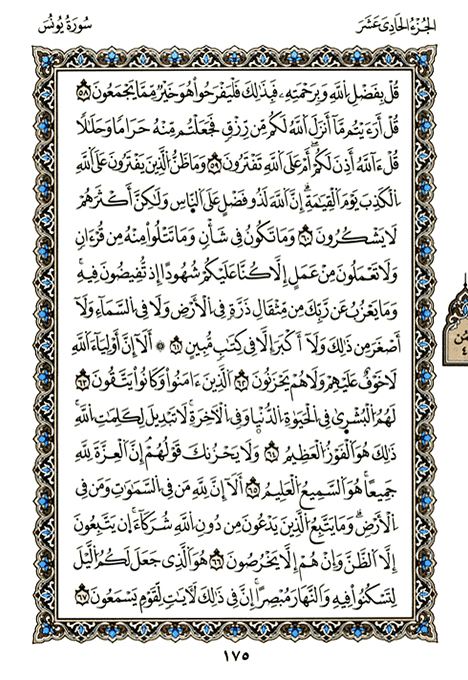 الجُزْءُ الحَادِيَ عَشَرَ
سُورَةُ يُونُسَ
قُلۡ بِفَضۡلِ ٱللَّهِ وَبِرَحۡمَتِهِۦ فَبِذَٰلِكَ فَلۡيَفۡرَحُواْ هُوَ خَيۡرٞ مِّمَّا يَجۡمَعُونَ ٥٨
قُلۡ أَرَءَيۡتُم مَّآ أَنزَلَ ٱللَّهُ لَكُم مِّن رِّزۡقٖ فَجَعَلۡتُم مِّنۡهُ حَرَامٗا وَحَلَٰلٗا
قُلۡ ءَآللَّهُ أَذِنَ لَكُمۡۖ أَمۡ عَلَى ٱللَّهِ تَفۡتَرُونَ ٥٩ وَمَا ظَنُّ ٱلَّذِينَ يَفۡتَرُونَ عَلَى ٱللَّهِ
ٱلۡكَذِبَ يَوۡمَ ٱلۡقِيَٰمَةِۗ إِنَّ ٱللَّهَ لَذُو فَضۡلٍ عَلَى ٱلنَّاسِ وَلَٰكِنَّ أَكۡثَرَهُمۡ
لَا يَشۡكُرُونَ ٦٠ وَمَا تَكُونُ فِي شَأۡنٖ وَمَا تَتۡلُواْ مِنۡهُ مِن قُرۡءَانٖ
وَلَا تَعۡمَلُونَ مِنۡ عَمَلٍ إِلَّا كُنَّا عَلَيۡكُمۡ شُهُودًا إِذۡ تُفِيضُونَ فِيهِۚ
وَمَا يَعۡزُبُ عَن رَّبِّكَ مِن مِّثۡقَالِ ذَرَّةٖ فِي ٱلۡأَرۡضِ وَلَا فِي ٱلسَّمَآءِ وَلَآ
أَصۡغَرَ مِن ذَٰلِكَ وَلَآ أَكۡبَرَ إِلَّا فِي كِتَٰبٖ مُّبِينٍ ٦١ ۞ أَلَآ إِنَّ أَوۡلِيَآءَ ٱللَّهِ
لَا خَوۡفٌ عَلَيۡهِمۡ وَلَا هُمۡ يَحۡزَنُونَ ٦٢ ٱلَّذِينَ ءَامَنُواْ وَكَانُواْ يَتَّقُونَ ٦٣
لَهُمُ ٱلۡبُشۡرَىٰ فِي ٱلۡحَيَوٰةِ ٱلدُّنۡيَا وَفِي ٱلۡأٓخِرَةِۚ لَا تَبۡدِيلَ لِكَلِمَٰتِ ٱللَّهِۚ
ذَٰلِكَ هُوَ ٱلۡفَوۡزُ ٱلۡعَظِيمُ ٦٤ وَلَا يَحۡزُنكَ قَوۡلُهُمۡۘ إِنَّ ٱلۡعِزَّةَ لِلَّهِ
جَمِيعًاۚ هُوَ ٱلسَّمِيعُ ٱلۡعَلِيمُ ٦٥ أَلَآ إِنَّ لِلَّهِ مَن فِي ٱلسَّمَٰوَٰتِ وَمَن فِي
ٱلۡأَرۡضِۗ وَمَا يَتَّبِعُ ٱلَّذِينَ يَدۡعُونَ مِن دُونِ ٱللَّهِ شُرَكَآءَۚ إِن يَتَّبِعُونَ
إِلَّا ٱلظَّنَّ وَإِنۡ هُمۡ إِلَّا يَخۡرُصُونَ ٦٦ هُوَ ٱلَّذِي جَعَلَ لَكُمُ ٱلَّيۡلَ
لِتَسۡكُنُواْ فِيهِ وَٱلنَّهَارَ مُبۡصِرًاۚ إِنَّ فِي ذَٰلِكَ لَأٓيَٰتٖ لِّقَوۡمٖ يَسۡمَعُونَ ٦٧
١٧٥